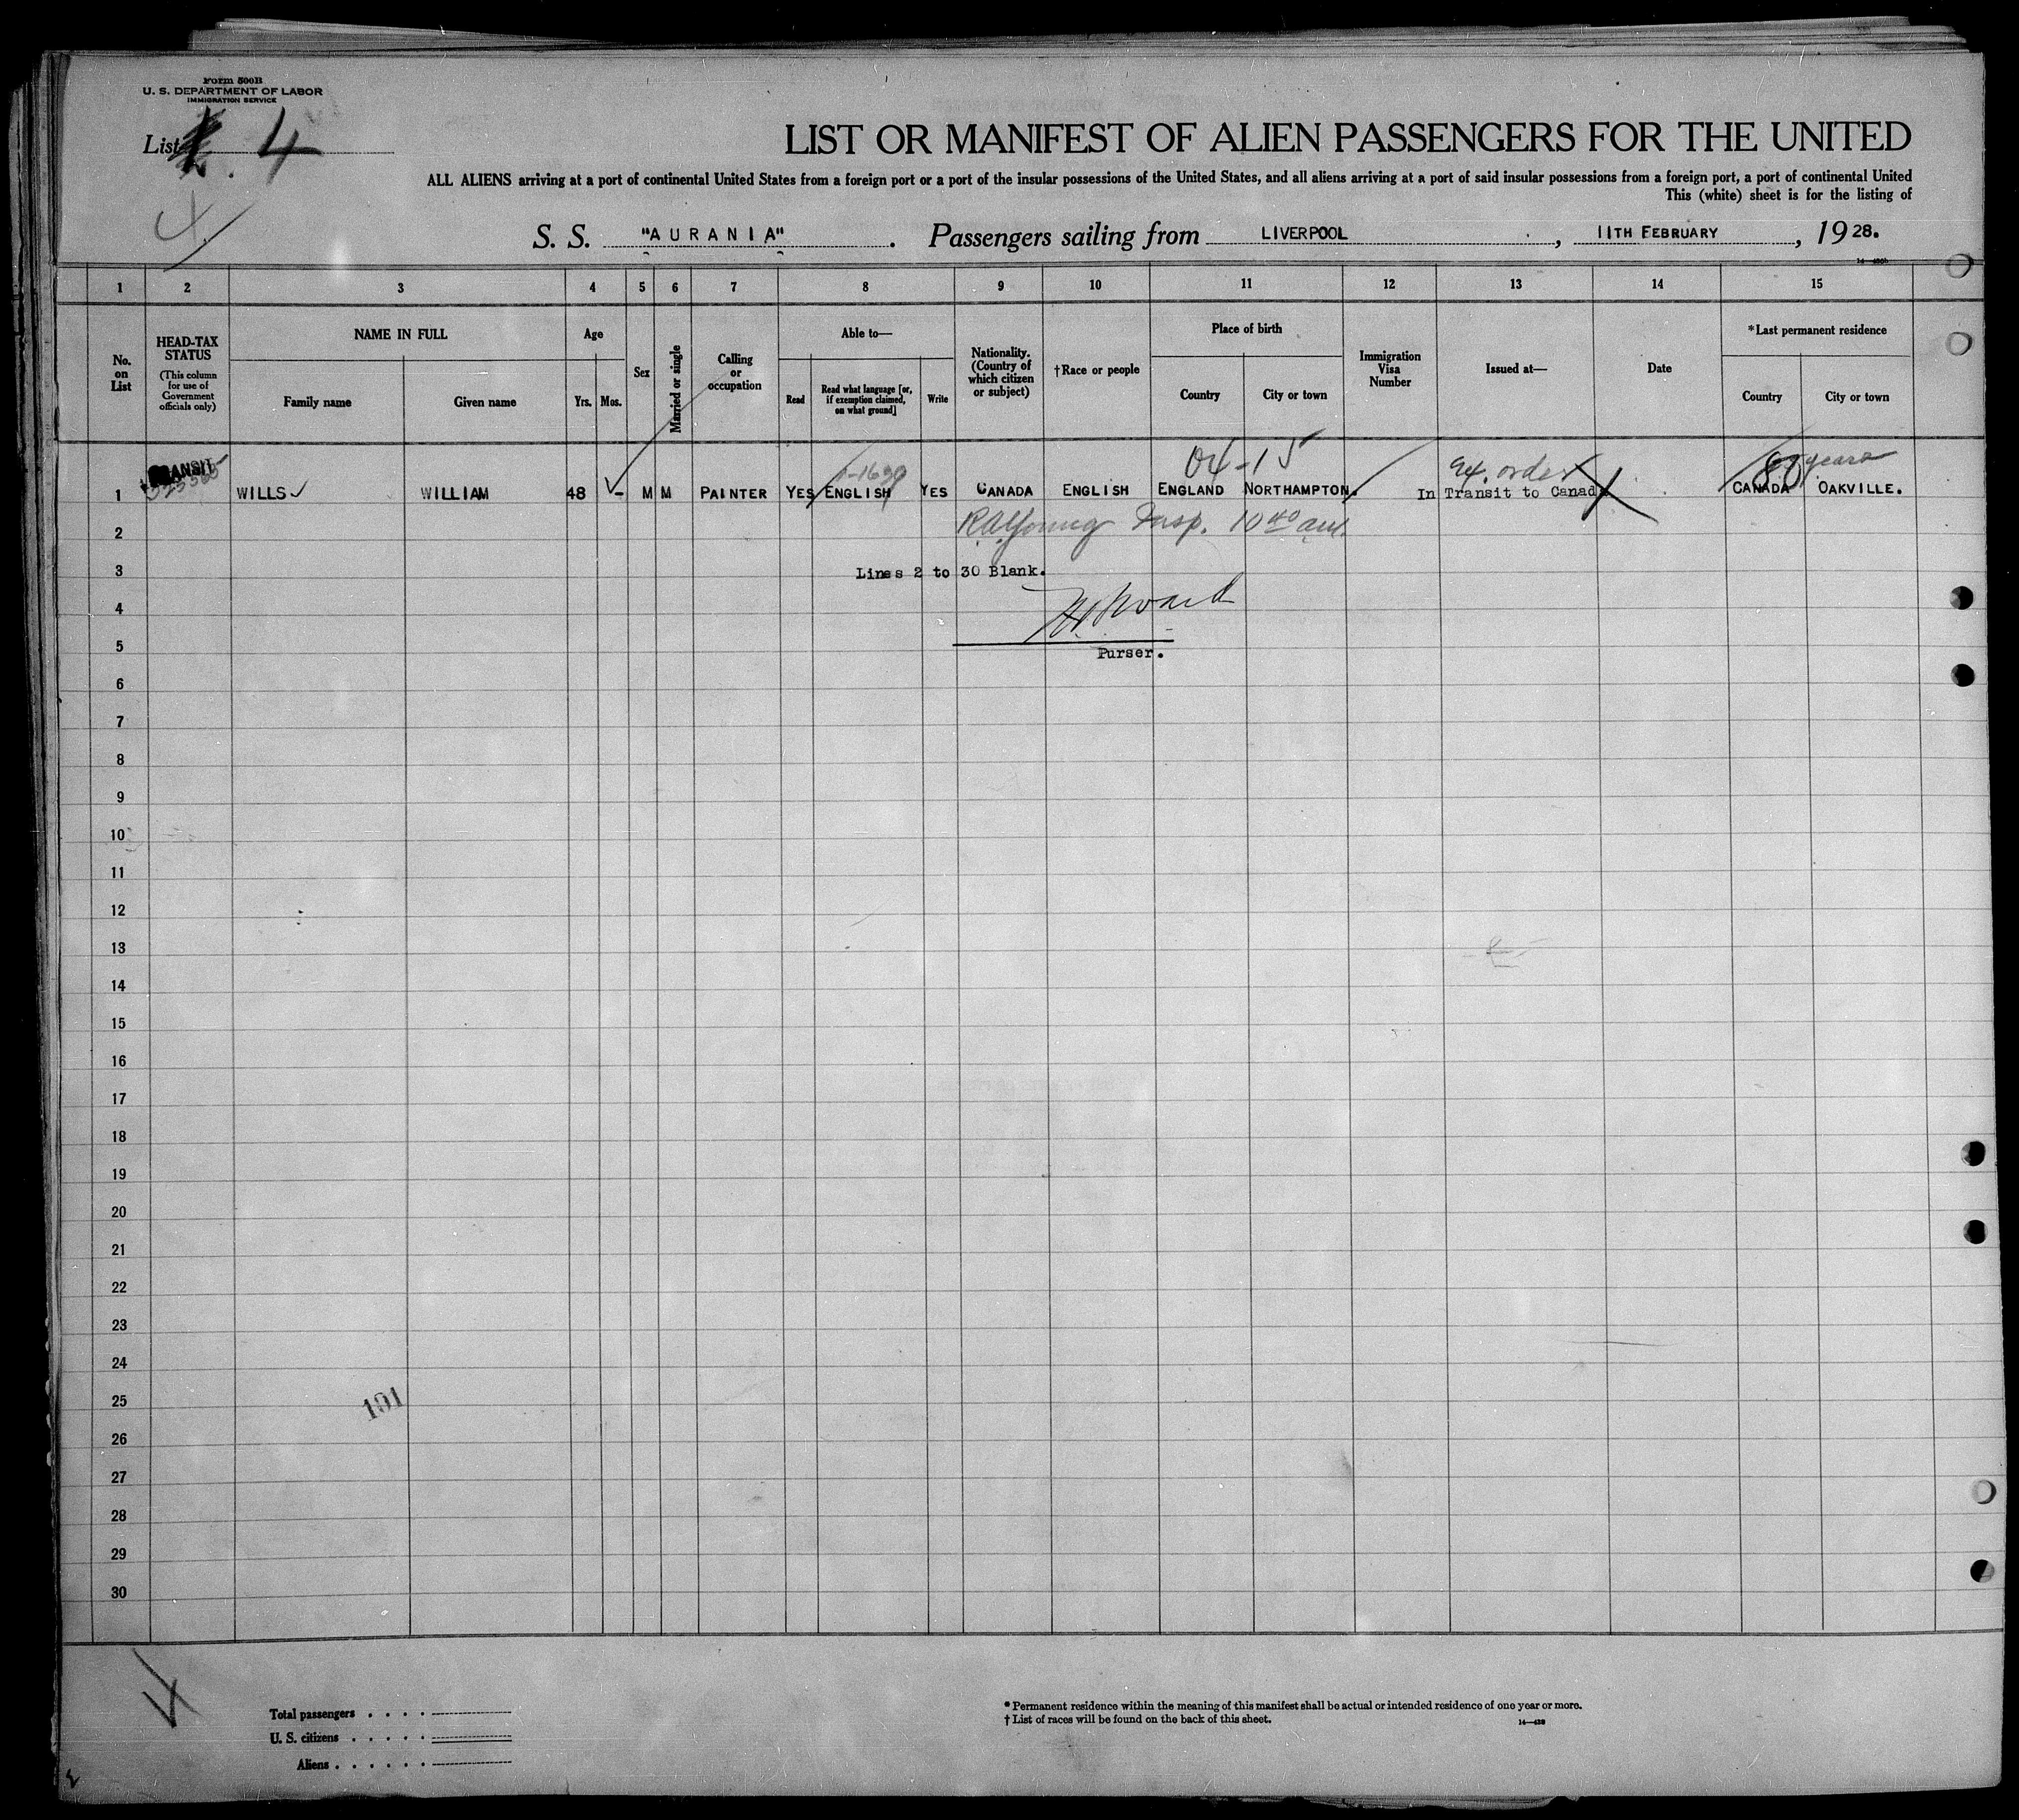 Form 500B
U. S. DEPARTMENT OF LABOR
IMMIGRATION SERVICE
List 4
4
LIST OR MANIFEST OF ALIEN PASSENGERS FOR THE UNITED
ALL ALIENS arriving at a port of continental United States from a foreign port or a port of the insular possessions of the United States, and all aliens arriving at a port of said insular possessions from a foreign port, a port of continental United
This (white) sheet is for the listing of
S. S. "AURANIA". Passengers sailing from LIVERPOOL, 11TH FEBRUARY, 1928.
1 2 3 4 5 6 7 8 9 10 11 12 13 14 15
No. on List
HEAD-TAX STATUS
(This column for use of Government officials only)
NAME IN FULL
Family name Given name
Age
Yrs. Mos.
Sex
Married or single
Calling or occupation
Able to—
Read
Read what language [or, if exemption claimed, on what ground]
Write
Nationality. (Country of which citizen or subject)
†Race or people
Place of birth
Country City or town
Immigration Visa Number
Issued at—
Date
*Last permanent residence
Country City or town
04-15 Ex. order years
1 TRANSIT WILLS WILLIAM 48 - M M PAINTER YES ENGLISH YES CANADA ENGLISH ENGLAND NORTHAMPTON. In Transit to Canada CANADA OAKVILLE.
2 RA Young Insp. 10 40 am.
3 Lines 2 to 30 Blank.
4
5 Purser.
6
7
8
9
10
11
12
13
14
15
16
17
18
19
20
21
22
23
24
25 101
26
27
28
29
30
Total passengers . . . .
U. S. citizens . . . . .
Aliens . . . . . .
* Permanent residence within the meaning of this manifest shall be actual or intended residence of one year or more.
† List of races will be found on the back of this sheet.